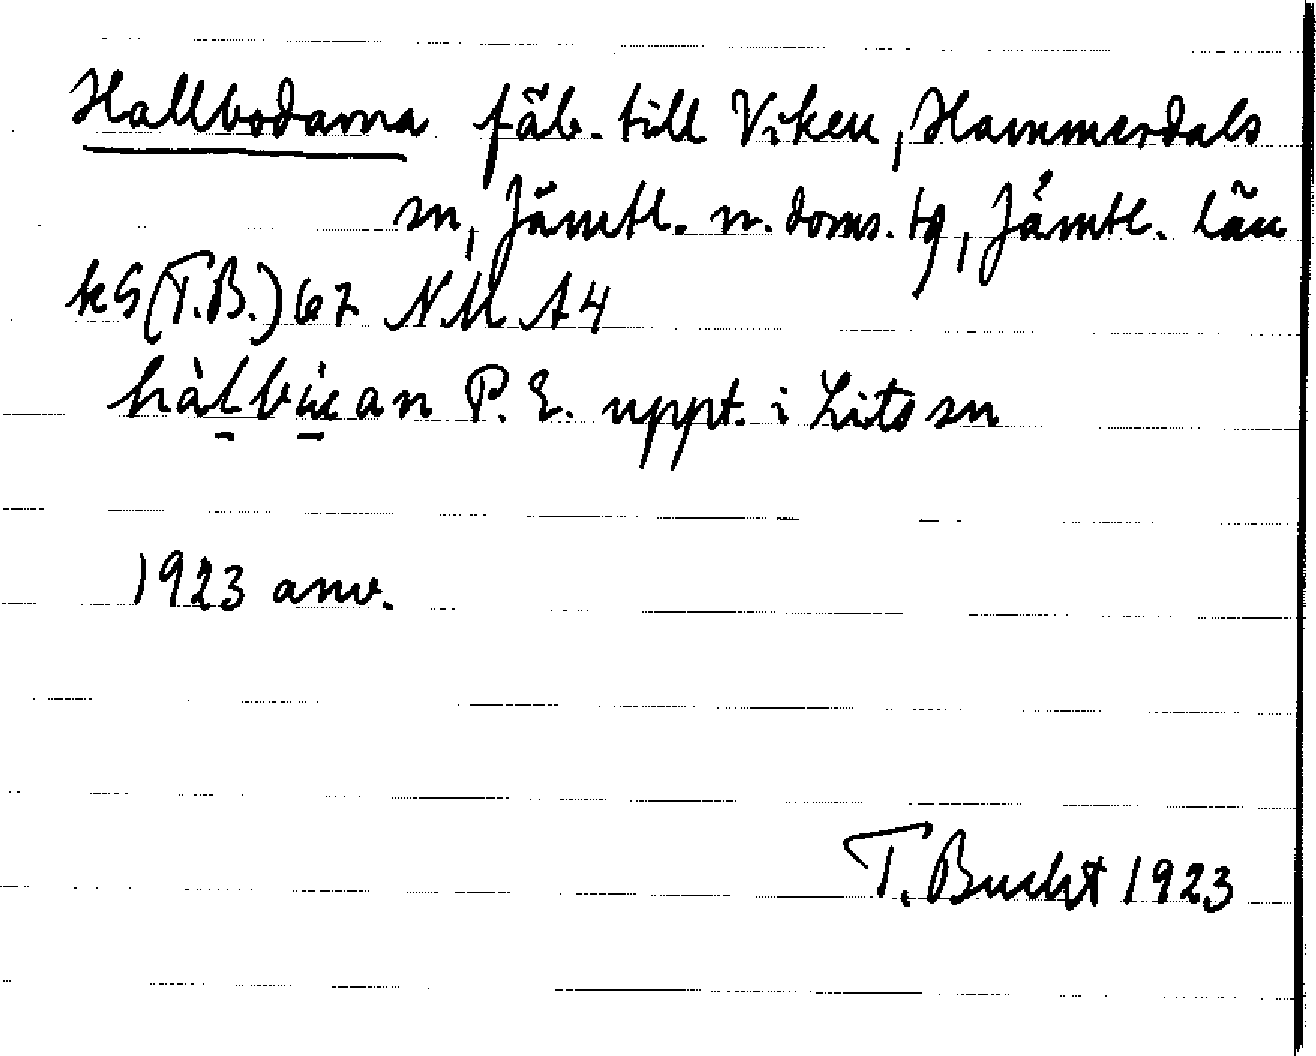 Hallbodarna fäb. till Viken, Hammerdals
sn, Jämtl. n. doms. tg, Jämtl. län
kS (T.B.) 67 NM A4
P. E. uppt. i Lits sn
1923 anv.
T. Bucht 1923